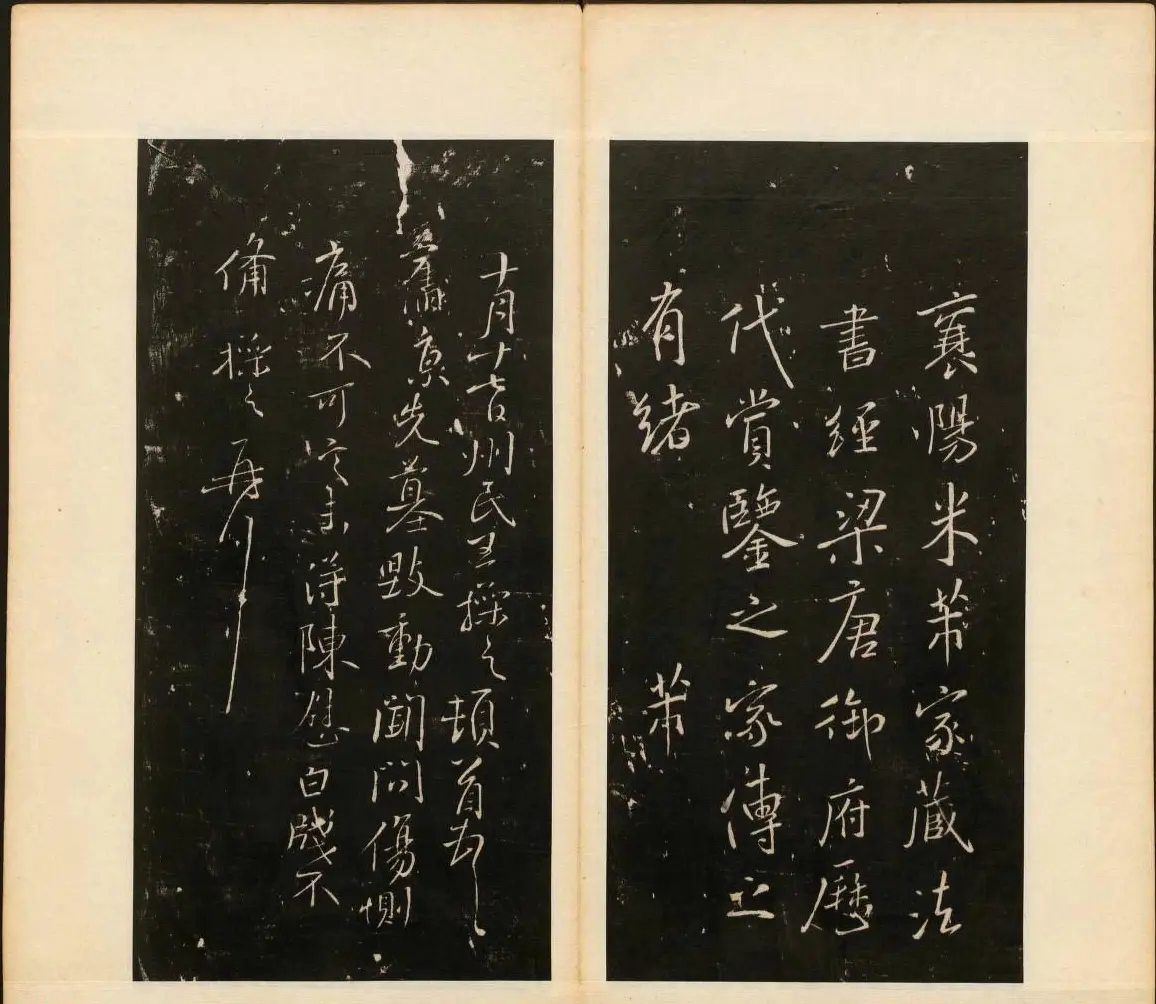 襄陽米芾家藏法
書經梁唐御府歷
代賞鑒之家傳之
有緒 芾
十月十七日州民王操之頓首
舊京先墓毀動聞問傷惻
痛不可言未得陳慰白牋不
備操之再拜